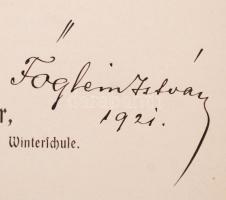 Főglein István
1921.
r,
Winterſchule.